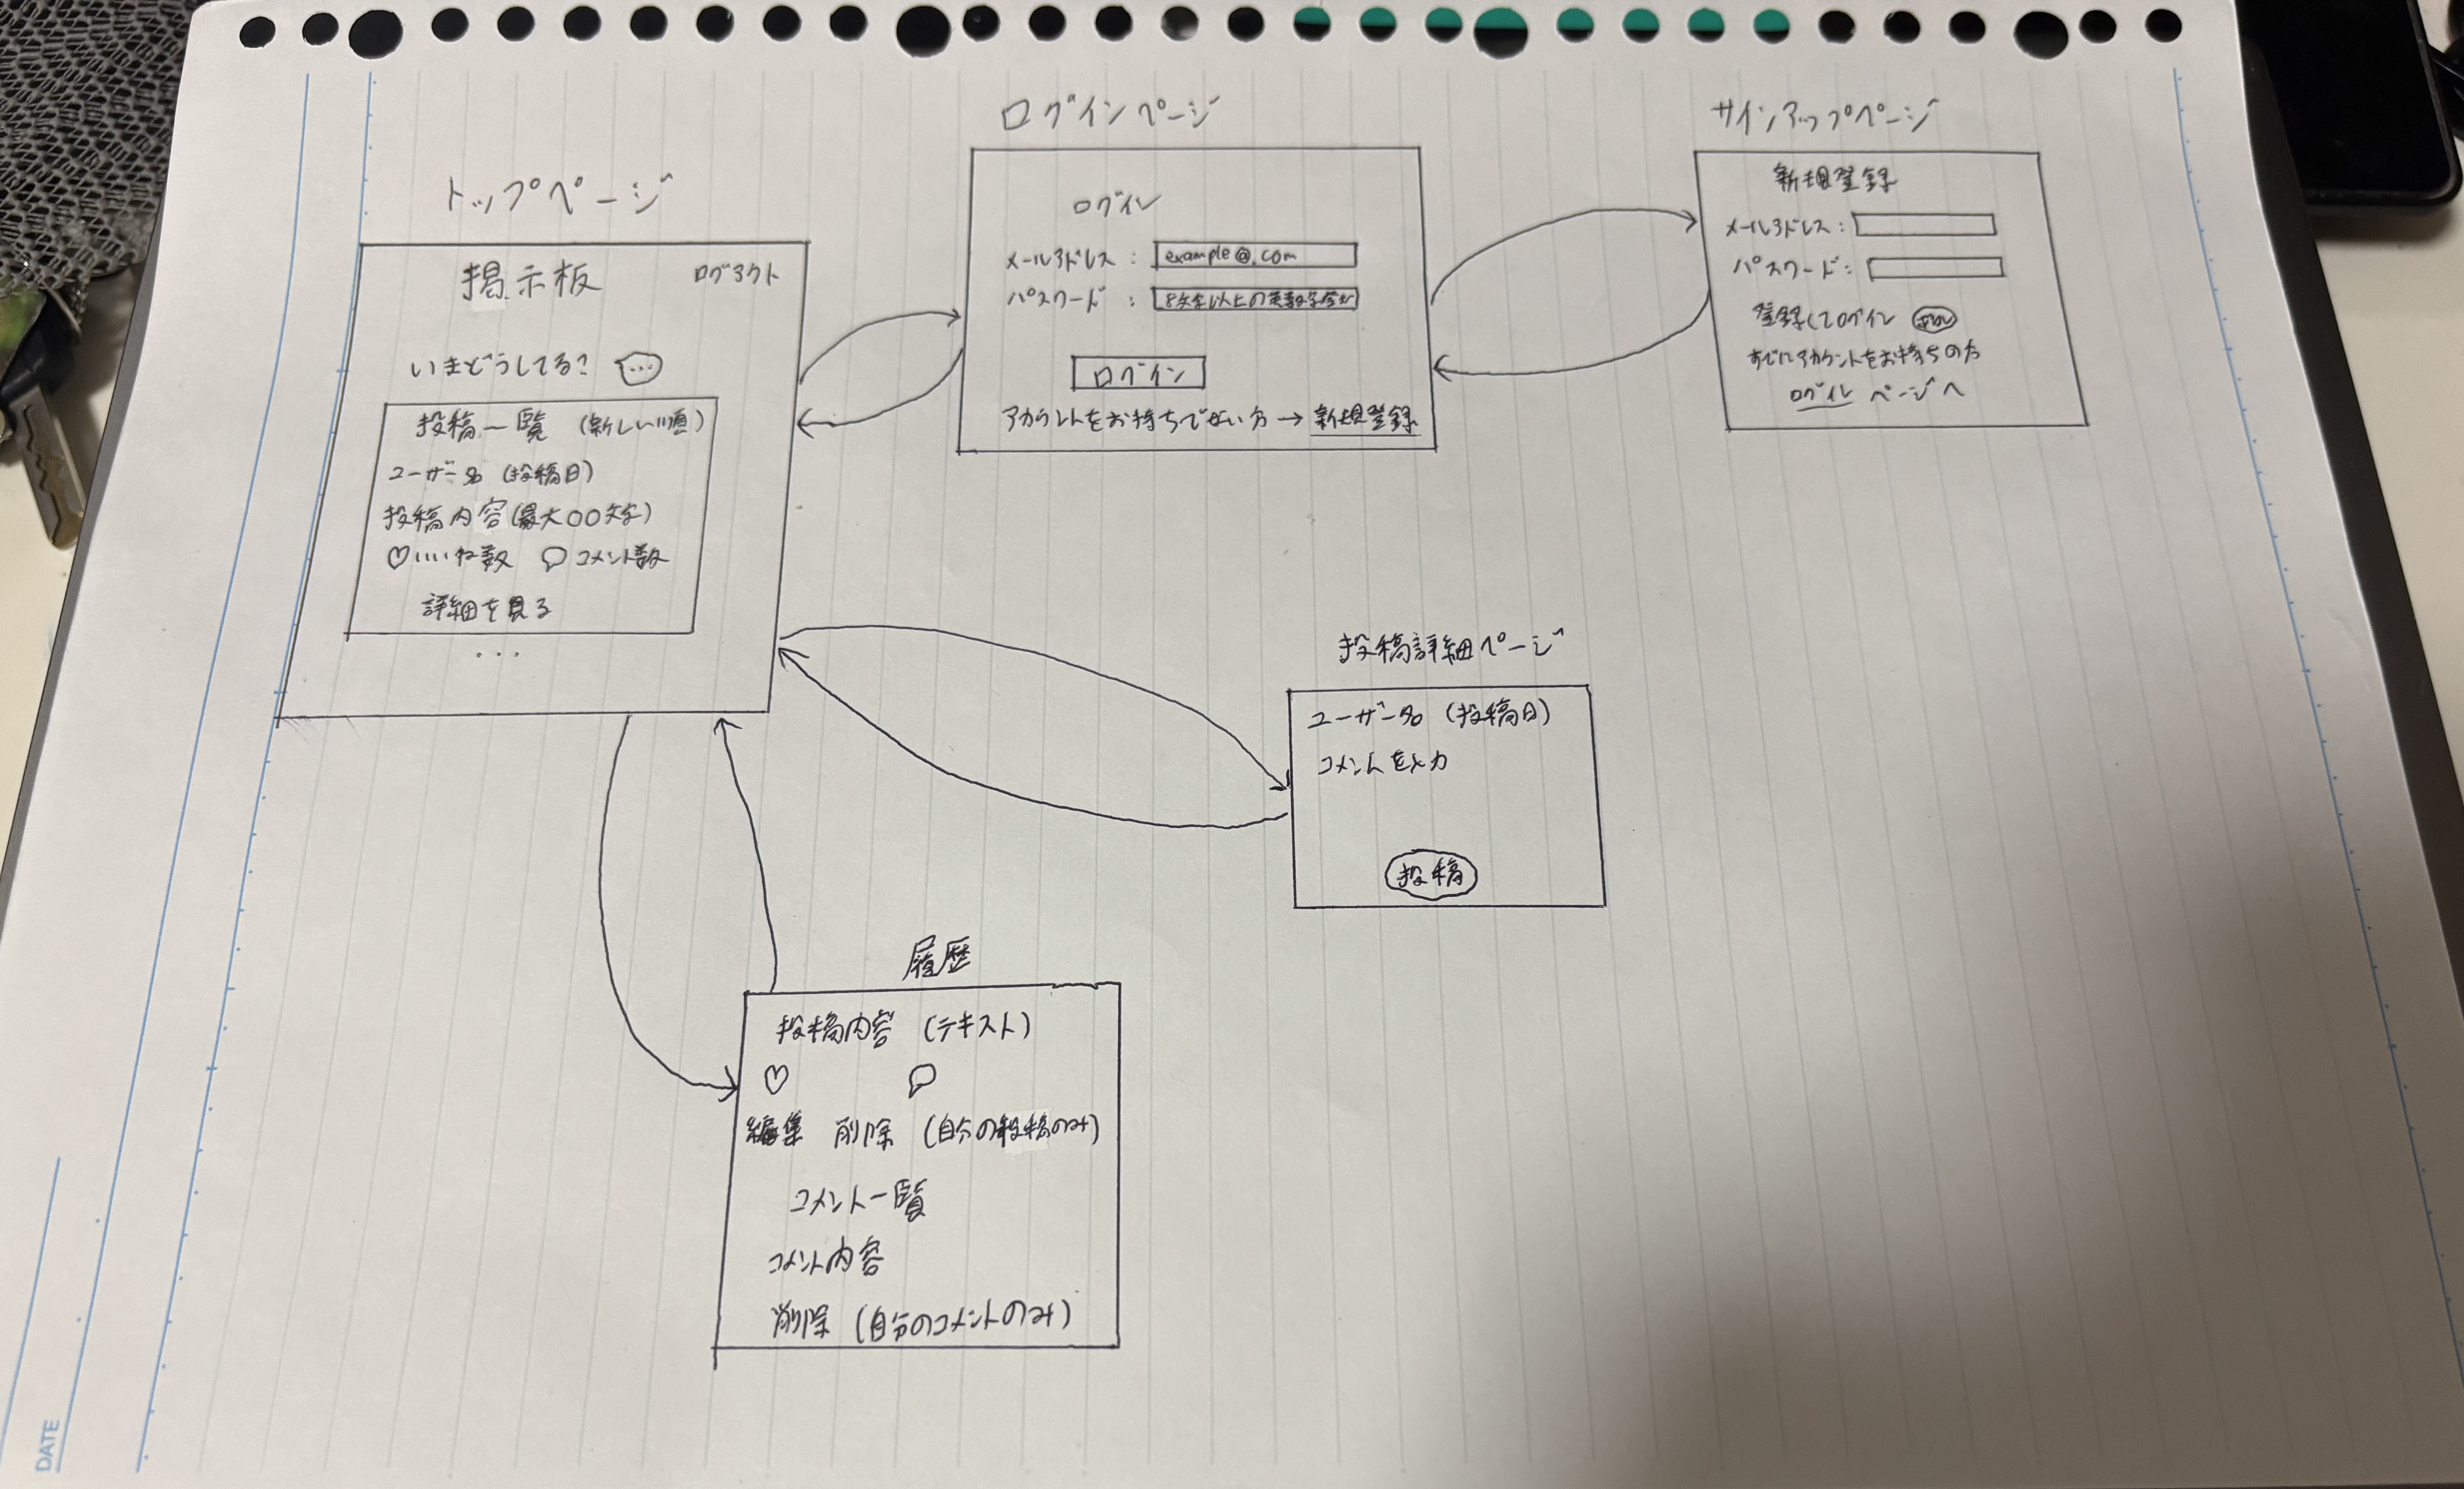 トップページ
掲示板
ログアウト
いまどうしてる?
投稿一覧 (新しい順)
ユーザー名 (投稿日)
投稿内容(最大○○文字)
♡いいね数 コメント数
詳細を見る
...
ログインページ
ログイン
メールアドレス : example@.com
パスワード : 8文字以上の英数字
ログイン
アカウントをお持ちでない方 → 新規登録
サインアップページ
新規登録
メールアドレス :
パスワード :
登録してログイン
すでにアカウントをお持ちの方
ログインページへ
投稿詳細ページ
ユーザー名 (投稿日)
コメントを入力
投稿
履歴
投稿内容 (テキスト)
♡
編集 削除 (自分の投稿のみ)
コメント一覧
コメント内容
削除 (自分のコメントのみ)
DATE